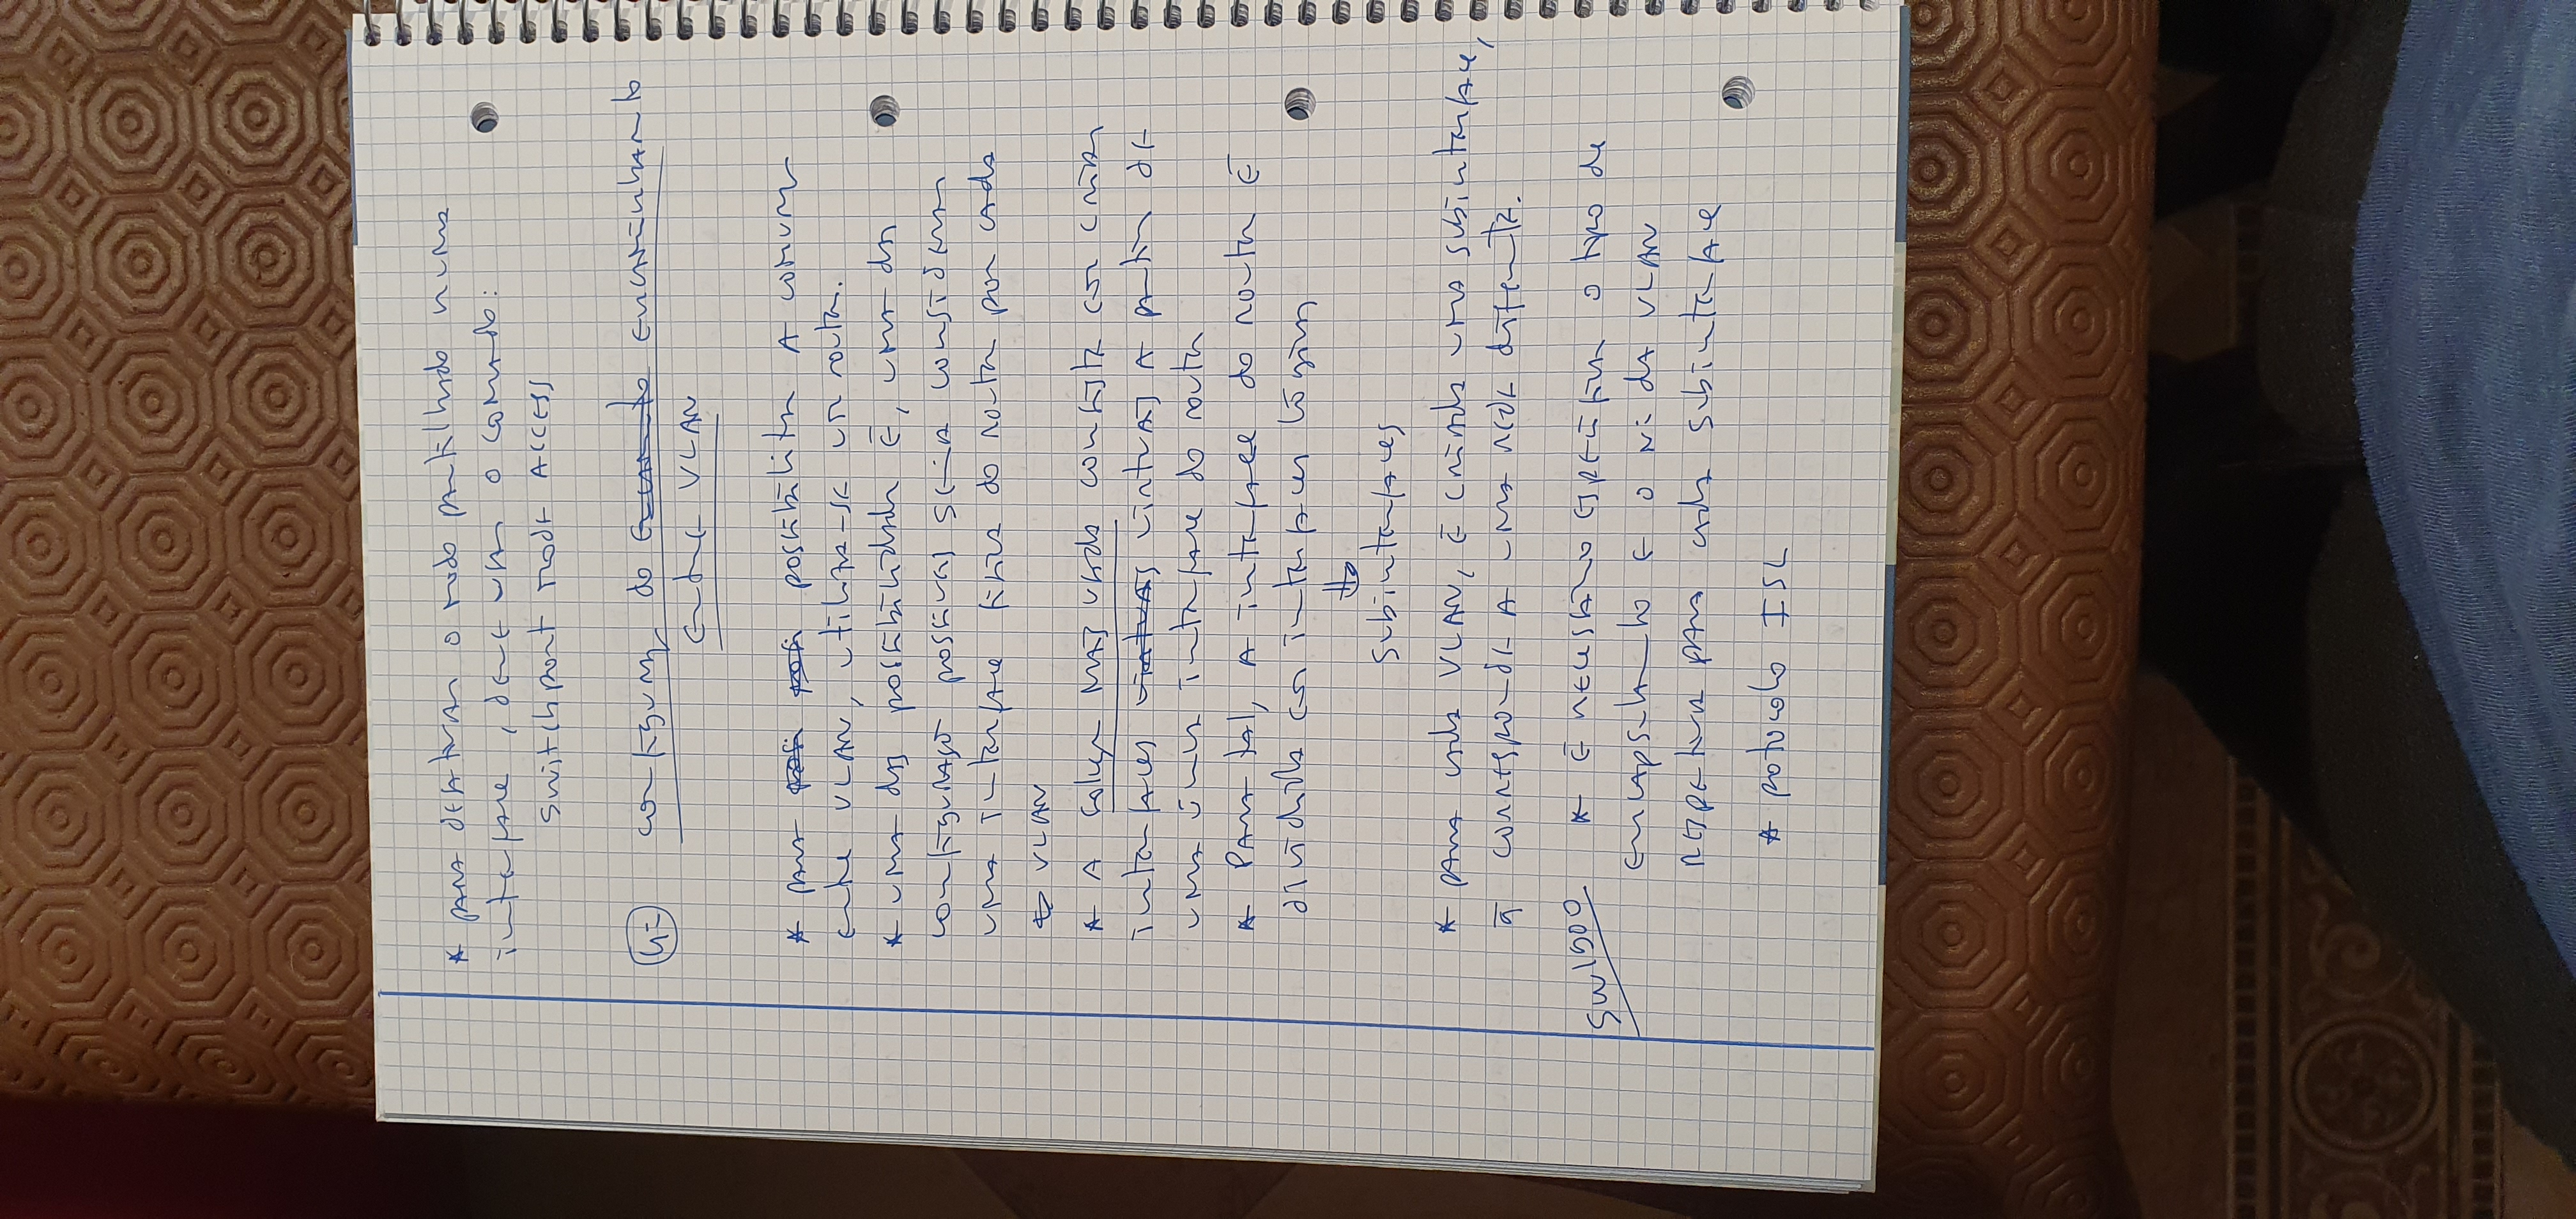 * para desativar o modo partilhado numa
interface, deve usar o comando:
switchport mode access
4= do encaminhamento
entre VLAN
* para possibilitar a
entre VLAN, utiliza-se um router.
* uma das possibilidades é, uma das
possíveis seria considerar
uma interface física do router por cada
VLAN
* A solução mais usada consiste em criar
interfaces virtuais a partir de
uma única interface do router
* Para tal, a interface do router é
dividida em interfaces lógicas
subinterfaces
* para cada VLAN, é criada uma subinterface,
q corresponde a uma rede diferente.
SW1900 * É necessário especificar o tipo de
encapsulamento e o nº da VLAN
respetiva para cada subinterface
* potocolo ISL